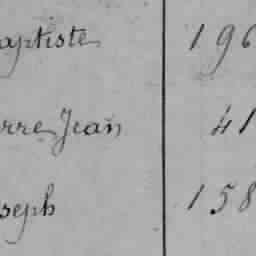 aptiste 196
erre Jean 41
seph 158